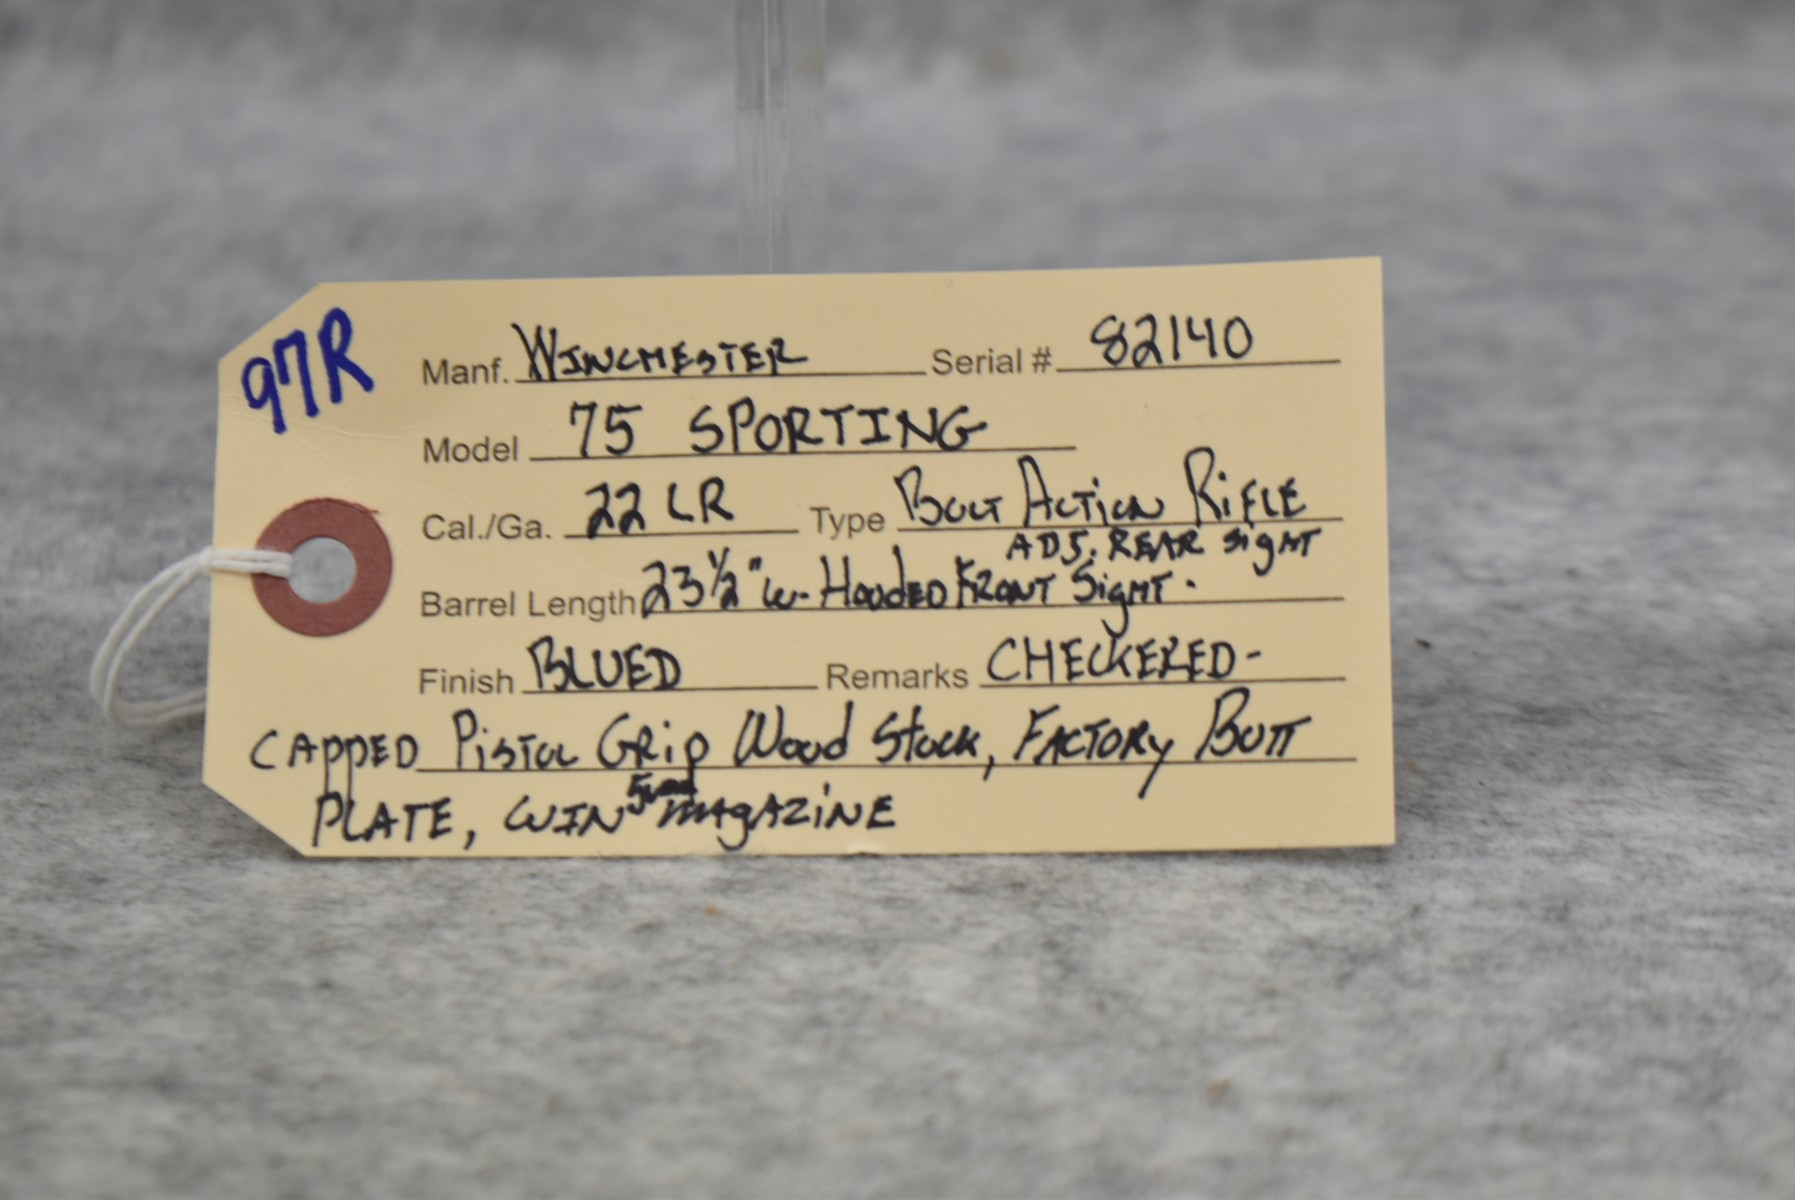 97R
Manf. WINCHESTER Serial # 82140
Model 75 SPORTING
Cal./Ga. 22 LR Type BOLT ACTION RIFLE
ADJ. REAR SIGHT
Barrel Length 23 1/2" w- HOODED FRONT SIGHT.
Finish BLUED Remarks CHECKERED-
CAPPED PISTOL GRIP WOOD STOCK, FACTORY BUTT
PLATE, WIN MAGAZINE